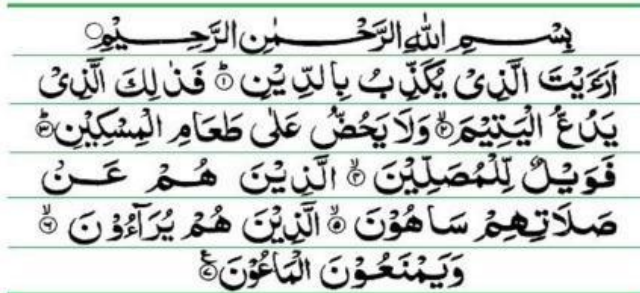 بِسْمِ اللهِ الرَّحْمٰنِ الرَّحِيْمِ
اَرَءَيْتَ الَّذِىْ يُكَذِّبُ بِالدِّيْنِ ۱ؕ فَذٰلِكَ الَّذِىْ
يَدُعُّ الْيَتِيْمَ ۲ۙ وَلَا يَحُضُّ عَلٰى طَعَامِ الْمِسْكِيْنِ ۳ؕ
فَوَيْلٌ لِّلْمُصَلِّيْنَ ۴ۙ الَّذِيْنَ هُمْ عَنْ
صَلَاتِهِمْ سَاهُوْنَ ۵ۙ الَّذِيْنَ هُمْ يُرَآءُوْنَ ۶ۙ
وَيَمْنَعُوْنَ الْمَاعُوْنَ ۷